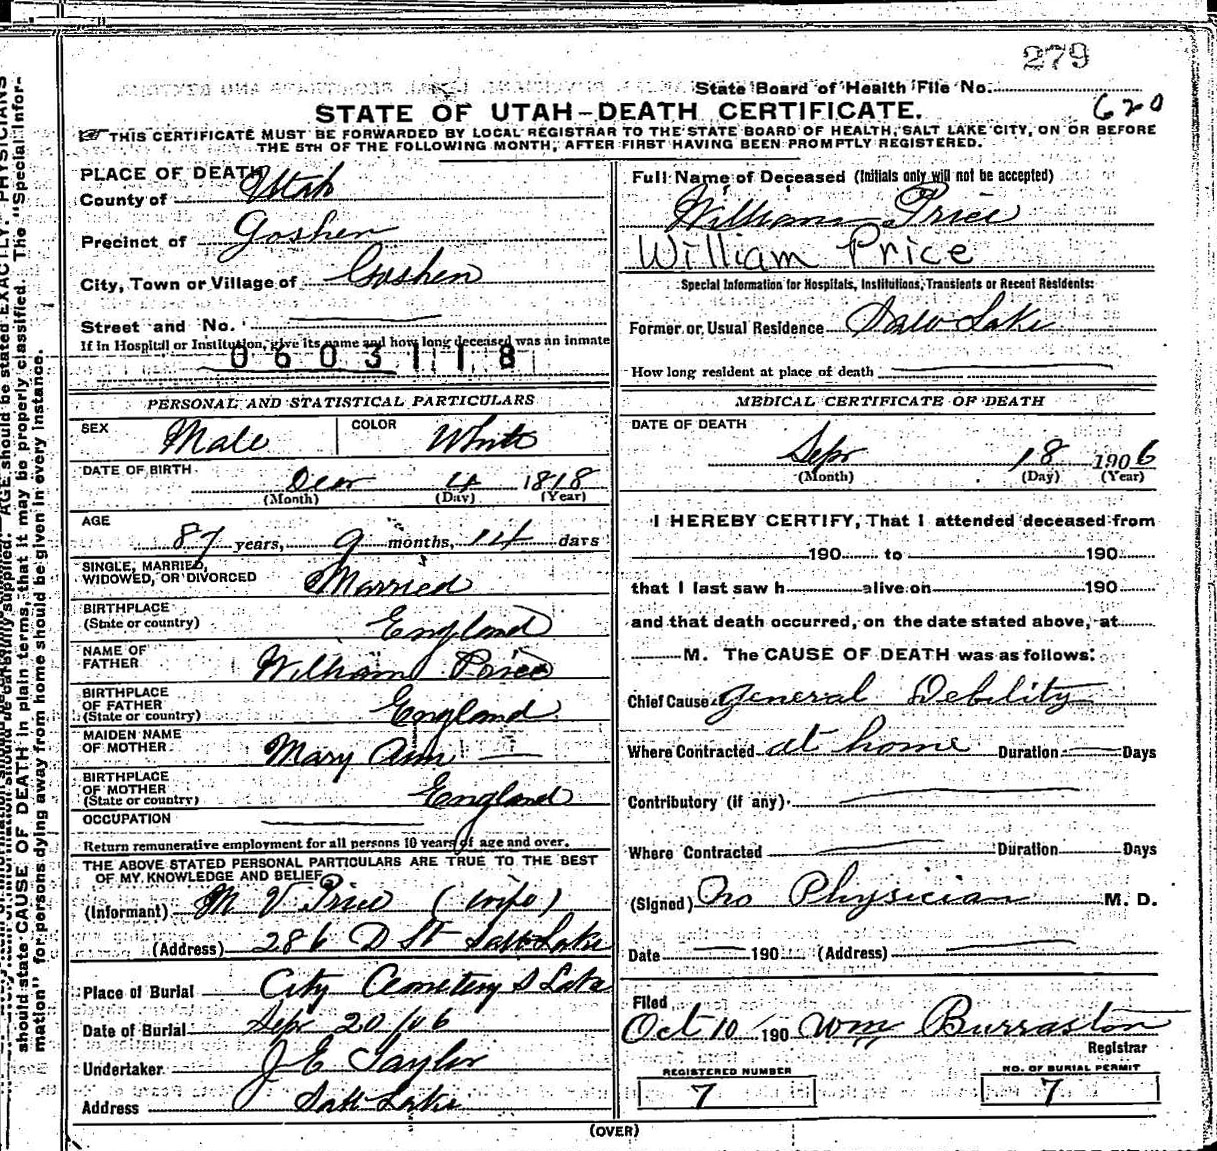 279
State Board of Health File No.
620
STATE OF UTAH-DEATH CERTIFICATE.
THIS CERTIFICATE MUST BE FORWARDED BY LOCAL REGISTRAR TO THE STATE BOARD OF HEALTH, SALT LAKE CITY, ON OR BEFORE
THE 5TH OF THE FOLLOWING MONTH, AFTER FIRST HAVING BEEN PROMPTLY REGISTERED.
PLACE OF DEATH
County of Utah
Precinct of Goshen
City, Town or Village of Goshen
Street and No.
If in Hospital or Institution, give its name and how long deceased was an inmate
0603118
Full Name of Deceased (Initials only will not be accepted)
William Price
William Price
Special Information for Hospitals, Institutions, Transients or Recent Residents:
Former or Usual Residence Salt Lake
How long resident at place of death
PERSONAL AND STATISTICAL PARTICULARS
SEX Male COLOR White
DATE OF BIRTH
Decr 4 1818
(Month) (Day) (Year)
AGE
87 years, 9 months, 14 days
SINGLE, MARRIED,
WIDOWED, OR DIVORCED Married
BIRTHPLACE
(State or country) England
NAME OF
FATHER William Price
BIRTHPLACE
OF FATHER
(State or country) England
MAIDEN NAME
OF MOTHER Mary Ann
BIRTHPLACE
OF MOTHER
(State or country) England
OCCUPATION
Return remunerative employment for all persons 10 years of age and over.
THE ABOVE STATED PERSONAL PARTICULARS ARE TRUE TO THE BEST
OF MY KNOWLEDGE AND BELIEF
(Informant) M V Price (wife)
(Address) 286 D St Salt Lake
Place of Burial City Cemetery S Lake
Date of Burial Sepr 20/06
Undertaker J E Taylor
Address Salt Lake
MEDICAL CERTIFICATE OF DEATH
DATE OF DEATH
Sepr 18 1906
(Month) (Day) (Year)
I HEREBY CERTIFY, That I attended deceased from
190 to 190
that I last saw h alive on 190
and that death occurred, on the date stated above, at
M. The CAUSE OF DEATH was as follows:
Chief Cause general Debility
Where Contracted at home Duration Days
Contributory (if any)
Where Contracted Duration Days
(Signed) No Physician M. D.
Date 190 (Address)
Filed
Oct 10 190 Wm Burraston
Registrar
REGISTERED NUMBER
7
NO. OF BURIAL PERMIT
7
(OVER)
AGE should be stated EXACTLY. PHYSICIANS
should state CAUSE OF DEATH in plain terms, that it may be properly classified. The "Special Infor-
mation" for persons dying away from home should be given in every instance.